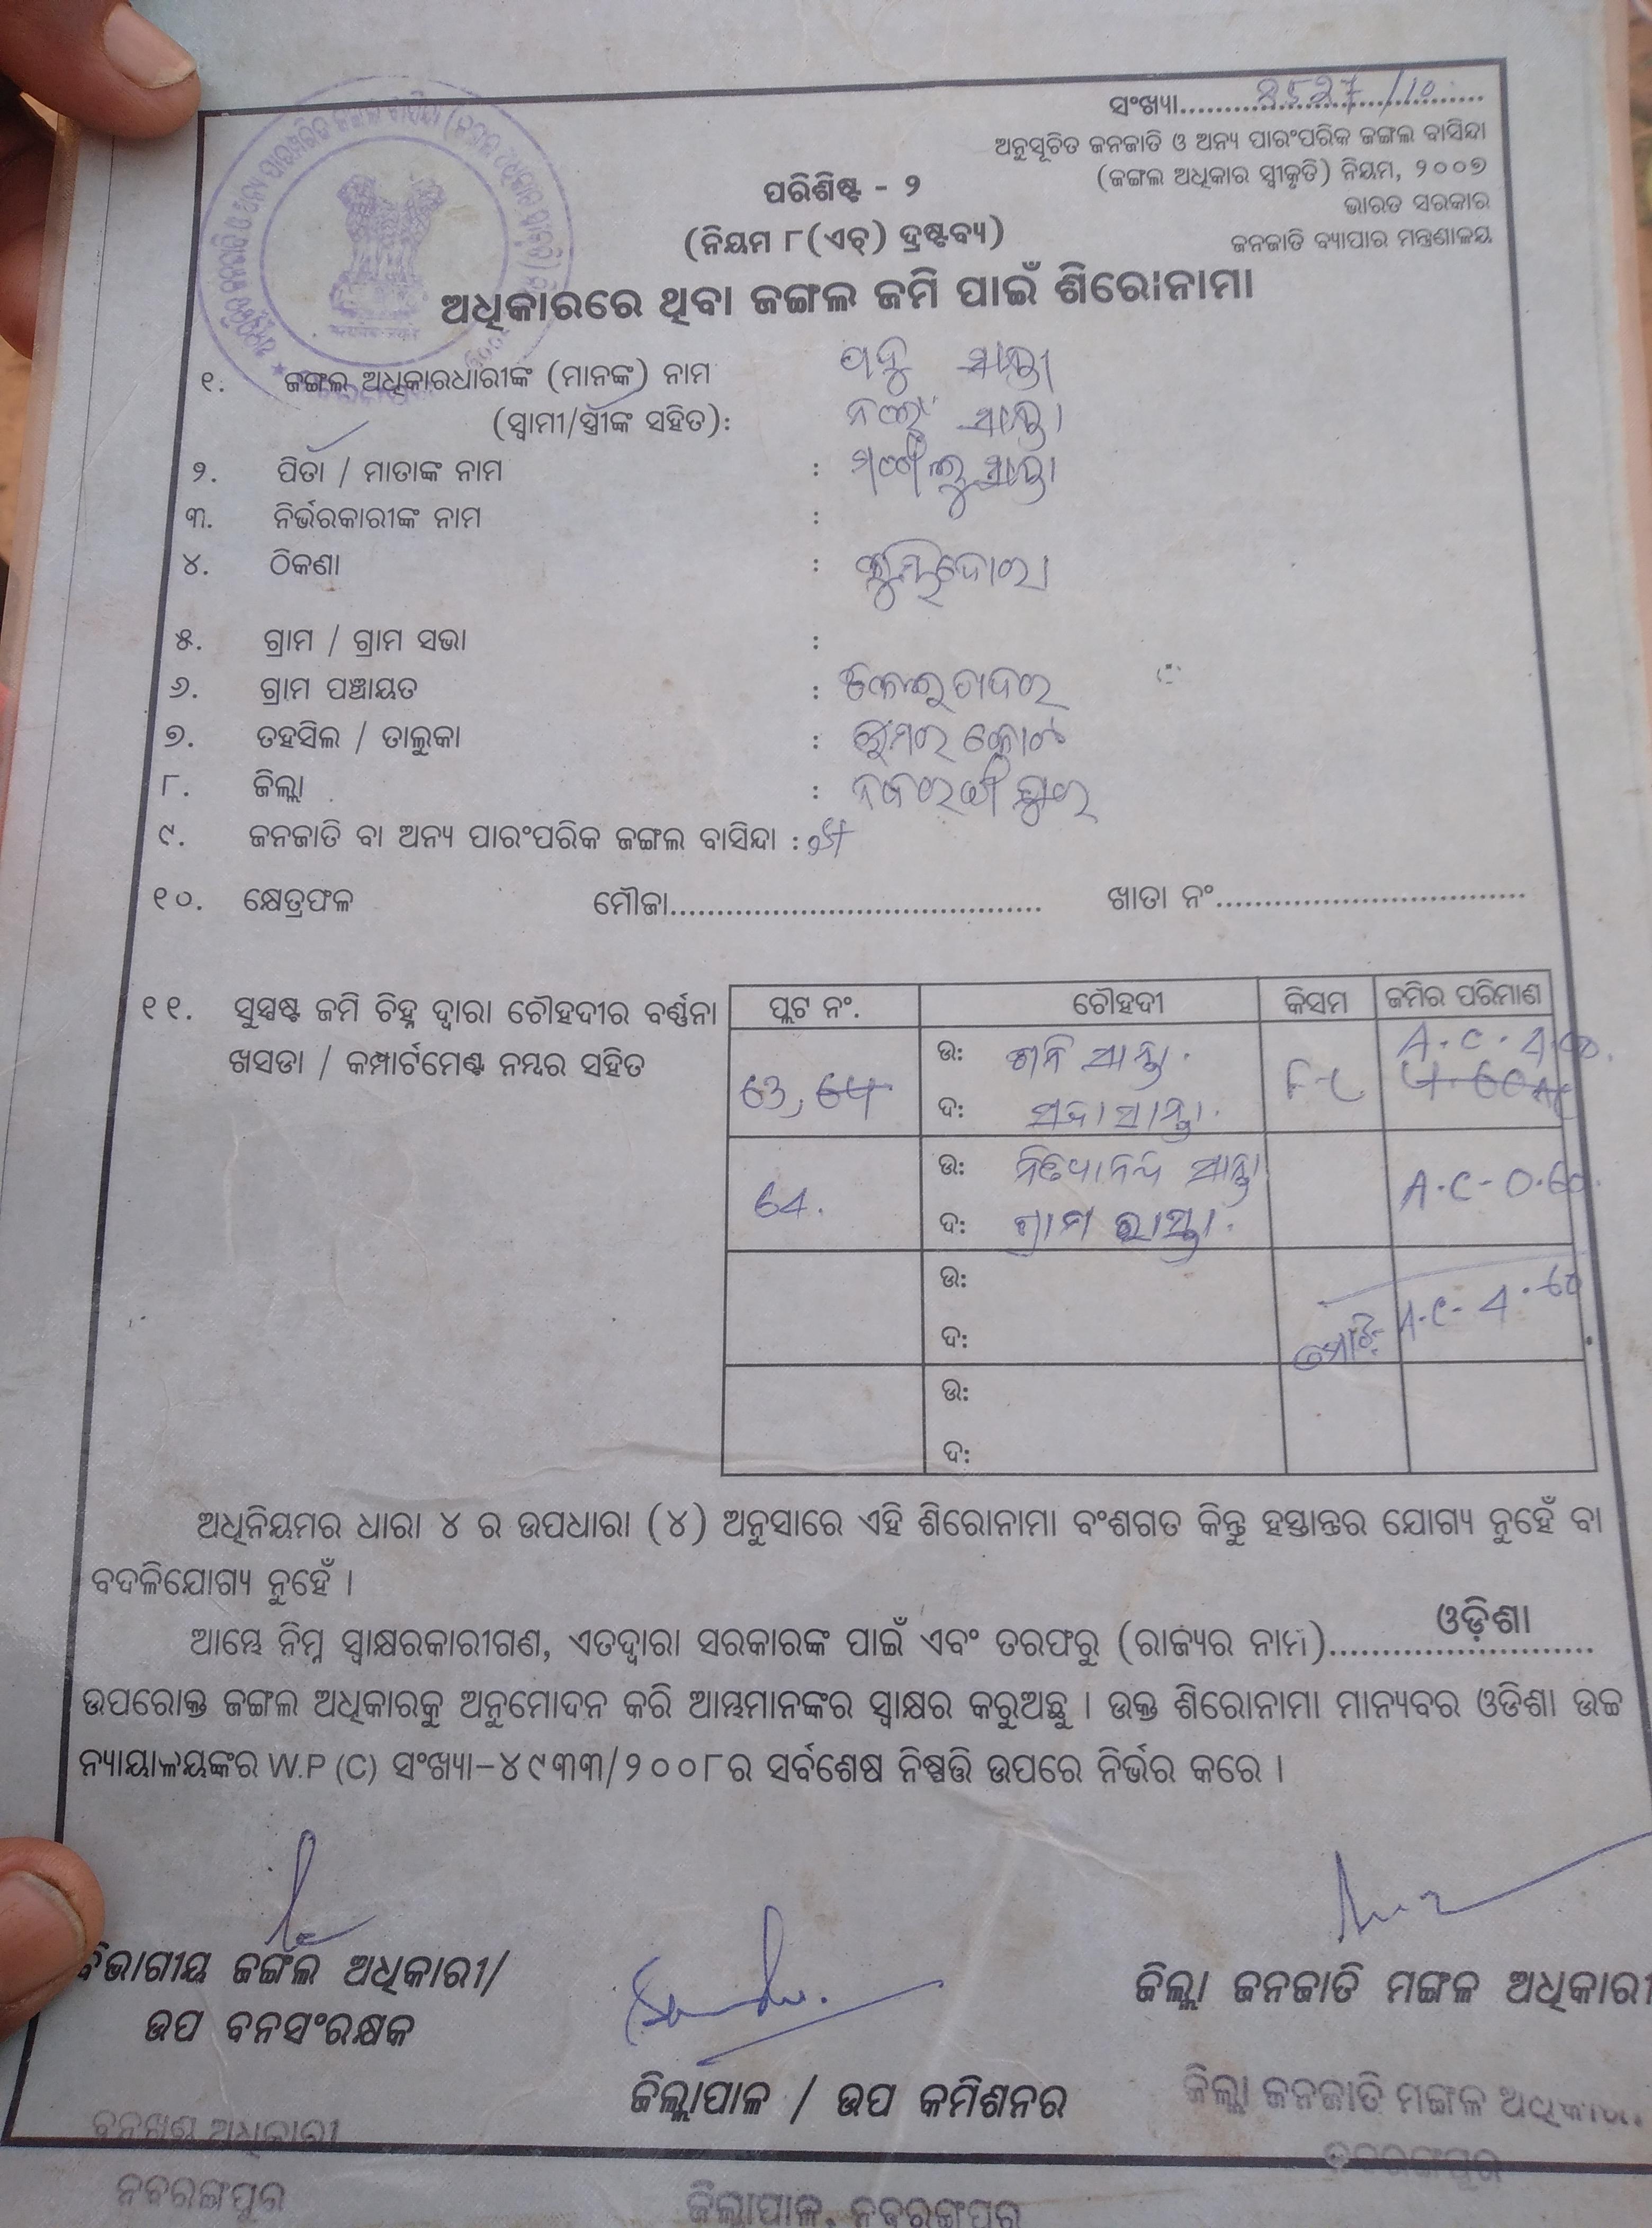 ସଂଖ୍ୟା........................../10
ଅନୁସୂଚିତ ଜନଜାତି ଓ ଅନ୍ୟ ପାରଂପରିକ ଜଙ୍ଗଲ ବାସିନ୍ଦା
(ଜଙ୍ଗଲ ଅଧିକାର ସ୍ୱୀକୃତି) ନିୟମ, ୨୦୦୭
ଭାରତ ସରକାର
ଜନଜାତି ବ୍ୟାପାର ମନ୍ତ୍ରଣାଳୟ
ପରିଶିଷ୍ଟ - ୨
(ନିୟମ ୮(ଏଚ୍) ଦ୍ରଷ୍ଟବ୍ୟ)
ଅଧିକାରରେ ଥିବା ଜଙ୍ଗଲ ଜମି ପାଇଁ ଶିରୋନାମା
୧. ଜଙ୍ଗଲ ଅଧିକାରଧାରୀଙ୍କ (ମାନଙ୍କ) ନାମ
(ସ୍ୱାମୀ/ସ୍ତ୍ରୀଙ୍କ ସହିତ):
୨. ପିତା / ମାତାଙ୍କ ନାମ :
୩. ନିର୍ଭରକାରୀଙ୍କ ନାମ :
୪. ଠିକଣା :
୫. ଗ୍ରାମ / ଗ୍ରାମ ସଭା :
୬. ଗ୍ରାମ ପଞ୍ଚାୟତ :
୭. ତହସିଲ / ତାଲୁକା :
୮. ଜିଲ୍ଲା : ନବରଙ୍ଗପୁର
୯. ଜନଜାତି ବା ଅନ୍ୟ ପାରଂପରିକ ଜଙ୍ଗଲ ବାସିନ୍ଦା :
୧୦. କ୍ଷେତ୍ରଫଳ ମୌଜା........................................ ଖାତା ନଂ.................................
୧୧. ସୁସ୍ପଷ୍ଟ ଜମି ଚିହ୍ନ ଦ୍ୱାରା ଚୌହଦୀର ବର୍ଣ୍ଣନା
ଖସଡା / କମ୍ପାର୍ଟମେଣ୍ଟ ନମ୍ବର ସହିତ
ପ୍ଲଟ ନଂ. ଚୌହଦୀ କିସମ ଜମିର ପରିମାଣ
ଉ: ଶନି ସାନ୍ତା
ଦ: ସଦା ସାନ୍ତା
ଉ: ସାନ୍ତା
64. A.C-0.60
ଦ: ଗ୍ରାମ ରାସ୍ତା
ଉ:
ମୋଟ A.C-4.60
ଦ:
ଉ:
ଦ:
ଅଧିନିୟମର ଧାରା ୪ ର ଉପଧାରା (୪) ଅନୁସାରେ ଏହି ଶିରୋନାମା ବଂଶଗତ କିନ୍ତୁ ହସ୍ତାନ୍ତର ଯୋଗ୍ୟ ନୁହେଁ ବା
ବଦଳିଯୋଗ୍ୟ ନୁହେଁ ।
ଆମ୍ଭେ ନିମ୍ନ ସ୍ୱାକ୍ଷରକାରୀଗଣ, ଏତଦ୍ୱାରା ସରକାରଙ୍କ ପାଇଁ ଏବଂ ତରଫରୁ (ରାଜ୍ୟର ନାମ)..........ଓଡ଼ିଶା..........
ଉପରୋକ୍ତ ଜଙ୍ଗଲ ଅଧିକାରକୁ ଅନୁମୋଦନ କରି ଆମ୍ଭମାନଙ୍କର ସ୍ୱାକ୍ଷର କରୁଅଛୁ । ଉକ୍ତ ଶିରୋନାମା ମାନ୍ୟବର ଓଡିଶା ଉଚ୍ଚ
ନ୍ୟାୟାଳୟଙ୍କର W.P (C) ସଂଖ୍ୟା–୪୯୩୩/୨୦୦୮ର ସର୍ବଶେଷ ନିଷ୍ପତ୍ତି ଉପରେ ନିର୍ଭର କରେ ।
ବିଭାଗୀୟ ଜଙ୍ଗଲ ଅଧିକାରୀ/
ଉପ ବନସଂରକ୍ଷକ
ଜିଲ୍ଲାପାଳ / ଉପ କମିଶନର
ଜିଲ୍ଲା ଜନଜାତି ମଙ୍ଗଳ ଅଧିକାରୀ
ବନଖଣ୍ଡ ଅଧିକାରୀ
ନବରଙ୍ଗପୁର
ଜିଲ୍ଲାପାଳ, ନବରଙ୍ଗପୁର
ଜିଲ୍ଲା ଜନଜାତି ମଙ୍ଗଳ ଅଧିକାରୀ
ନବରଙ୍ଗପୁର